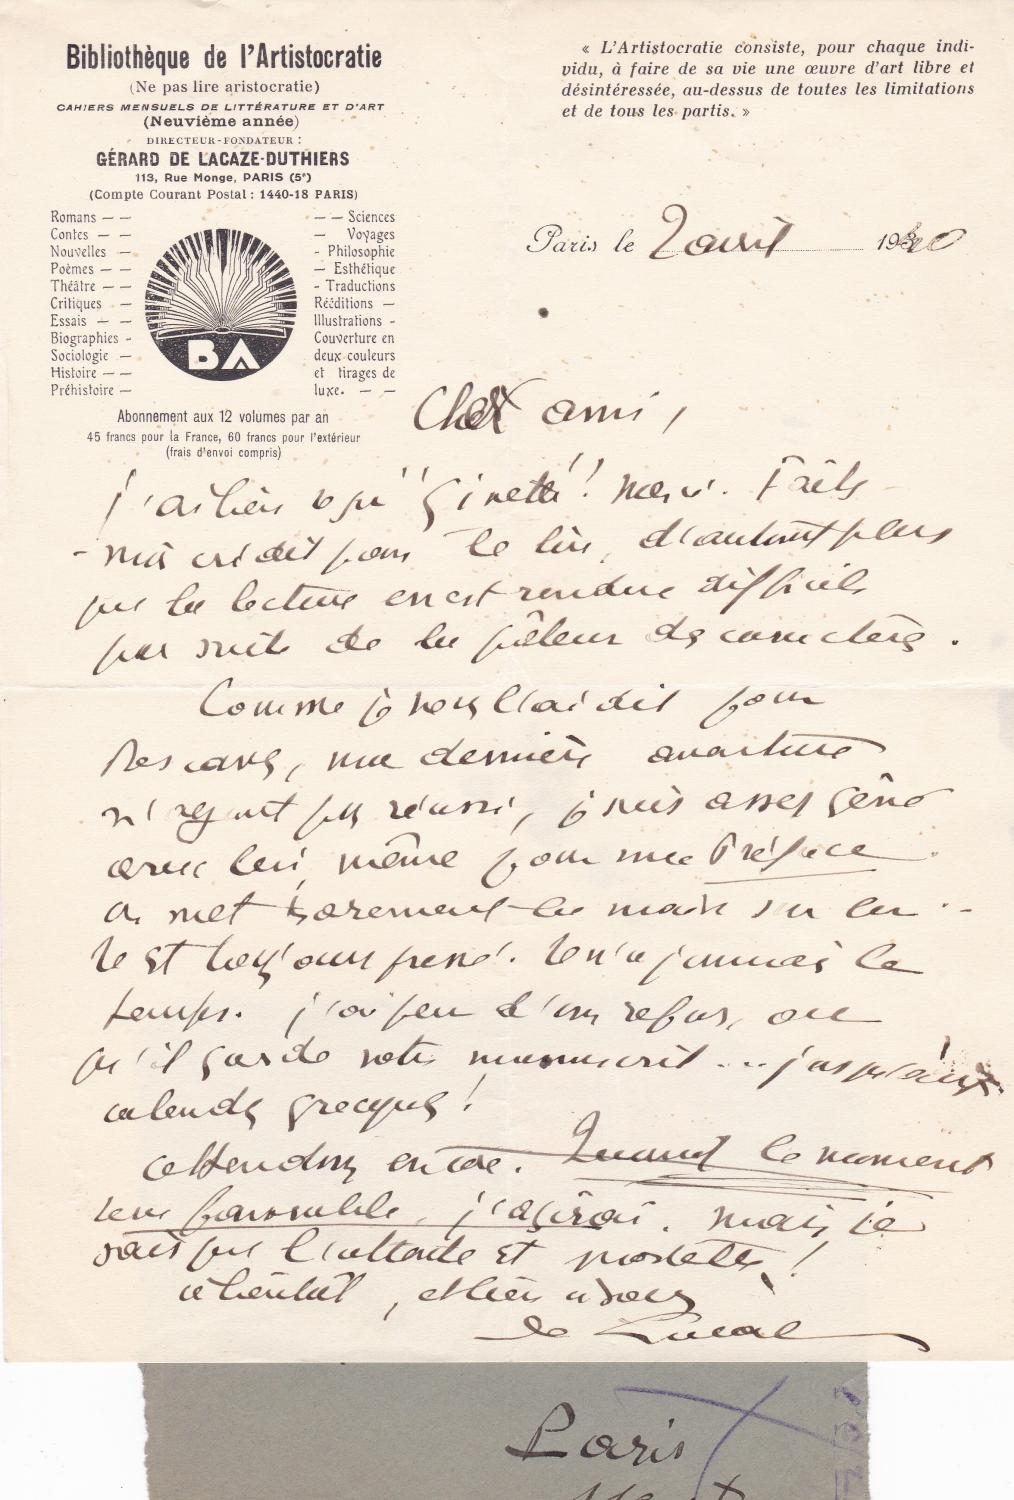 Bibliothèque de l'Artistocratie
(Ne pas lire aristocratie)
CAHIERS MENSUELS DE LITTÉRATURE ET D'ART
(Neuvième année)
DIRECTEUR-FONDATEUR :
GÉRARD DE LACAZE-DUTHIERS
113, Rue Monge, PARIS (5e)
(Compte Courant Postal : 1440-18 PARIS)
Romans — —
Contes — —
Nouvelles —
Poèmes — —
Théâtre — —
Critiques —
Essais — —
Biographies -
Sociologie —
Histoire — —
Préhistoire —
BA
— — Sciences
— Voyages
- Philosophie
— Esthétique
- Traductions
Rééditions —
Illustrations -
Couverture en
deux couleurs
et tirages de
luxe. — —
Abonnement aux 12 volumes par an
45 francs pour la France, 60 francs pour l'extérieur
(frais d'envoi compris)
« L'Artistocratie consiste, pour chaque indi-
vidu, à faire de sa vie une œuvre d'art libre et
désintéressée, au-dessus de toutes les limitations
et de tous les partis. »
Paris le 2 avril 1940
Cher ami,
J'ai bien reçu "Ginette"! Merci. Faites
-moi crédit pour le lire, d'autant plus
que la lecture en est rendue difficile
par suite de la pâleur des caractères.
Comme je vous l'ai dit pour
ma dernière aventure
n'ayant pas réussi, je suis assez gêné
avec lui, même pour ma Préface.
On met rarement la main sur lui..
Il est toujours pressé. Il n'a jamais le
temps. J'ai peur d'un refus, ou
qu'il garde votre manuscrit... jusqu'aux
calendes grecques!
Attendons encore. Quand le moment
sera favorable, j'agirai. Mais je
sais que l'attente est
à bientôt, et bien à vous
de Lacaze
Paris